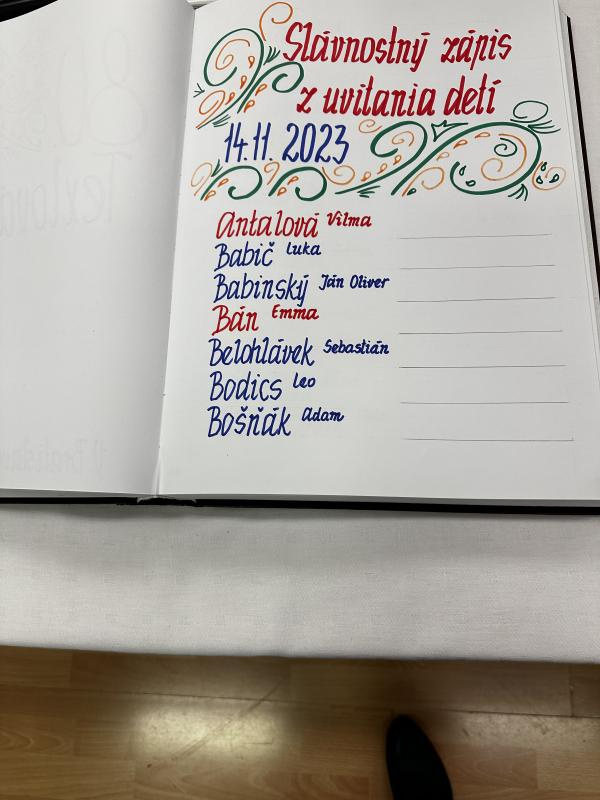 Slávnostný zápis
z uvítania detí
14.11. 2023
Antalová Vilma
Babič Luka
Babinský Ján Oliver
Bán Emma
Belohlávek Sebastián
Bodics Leo
Bošňák Adam